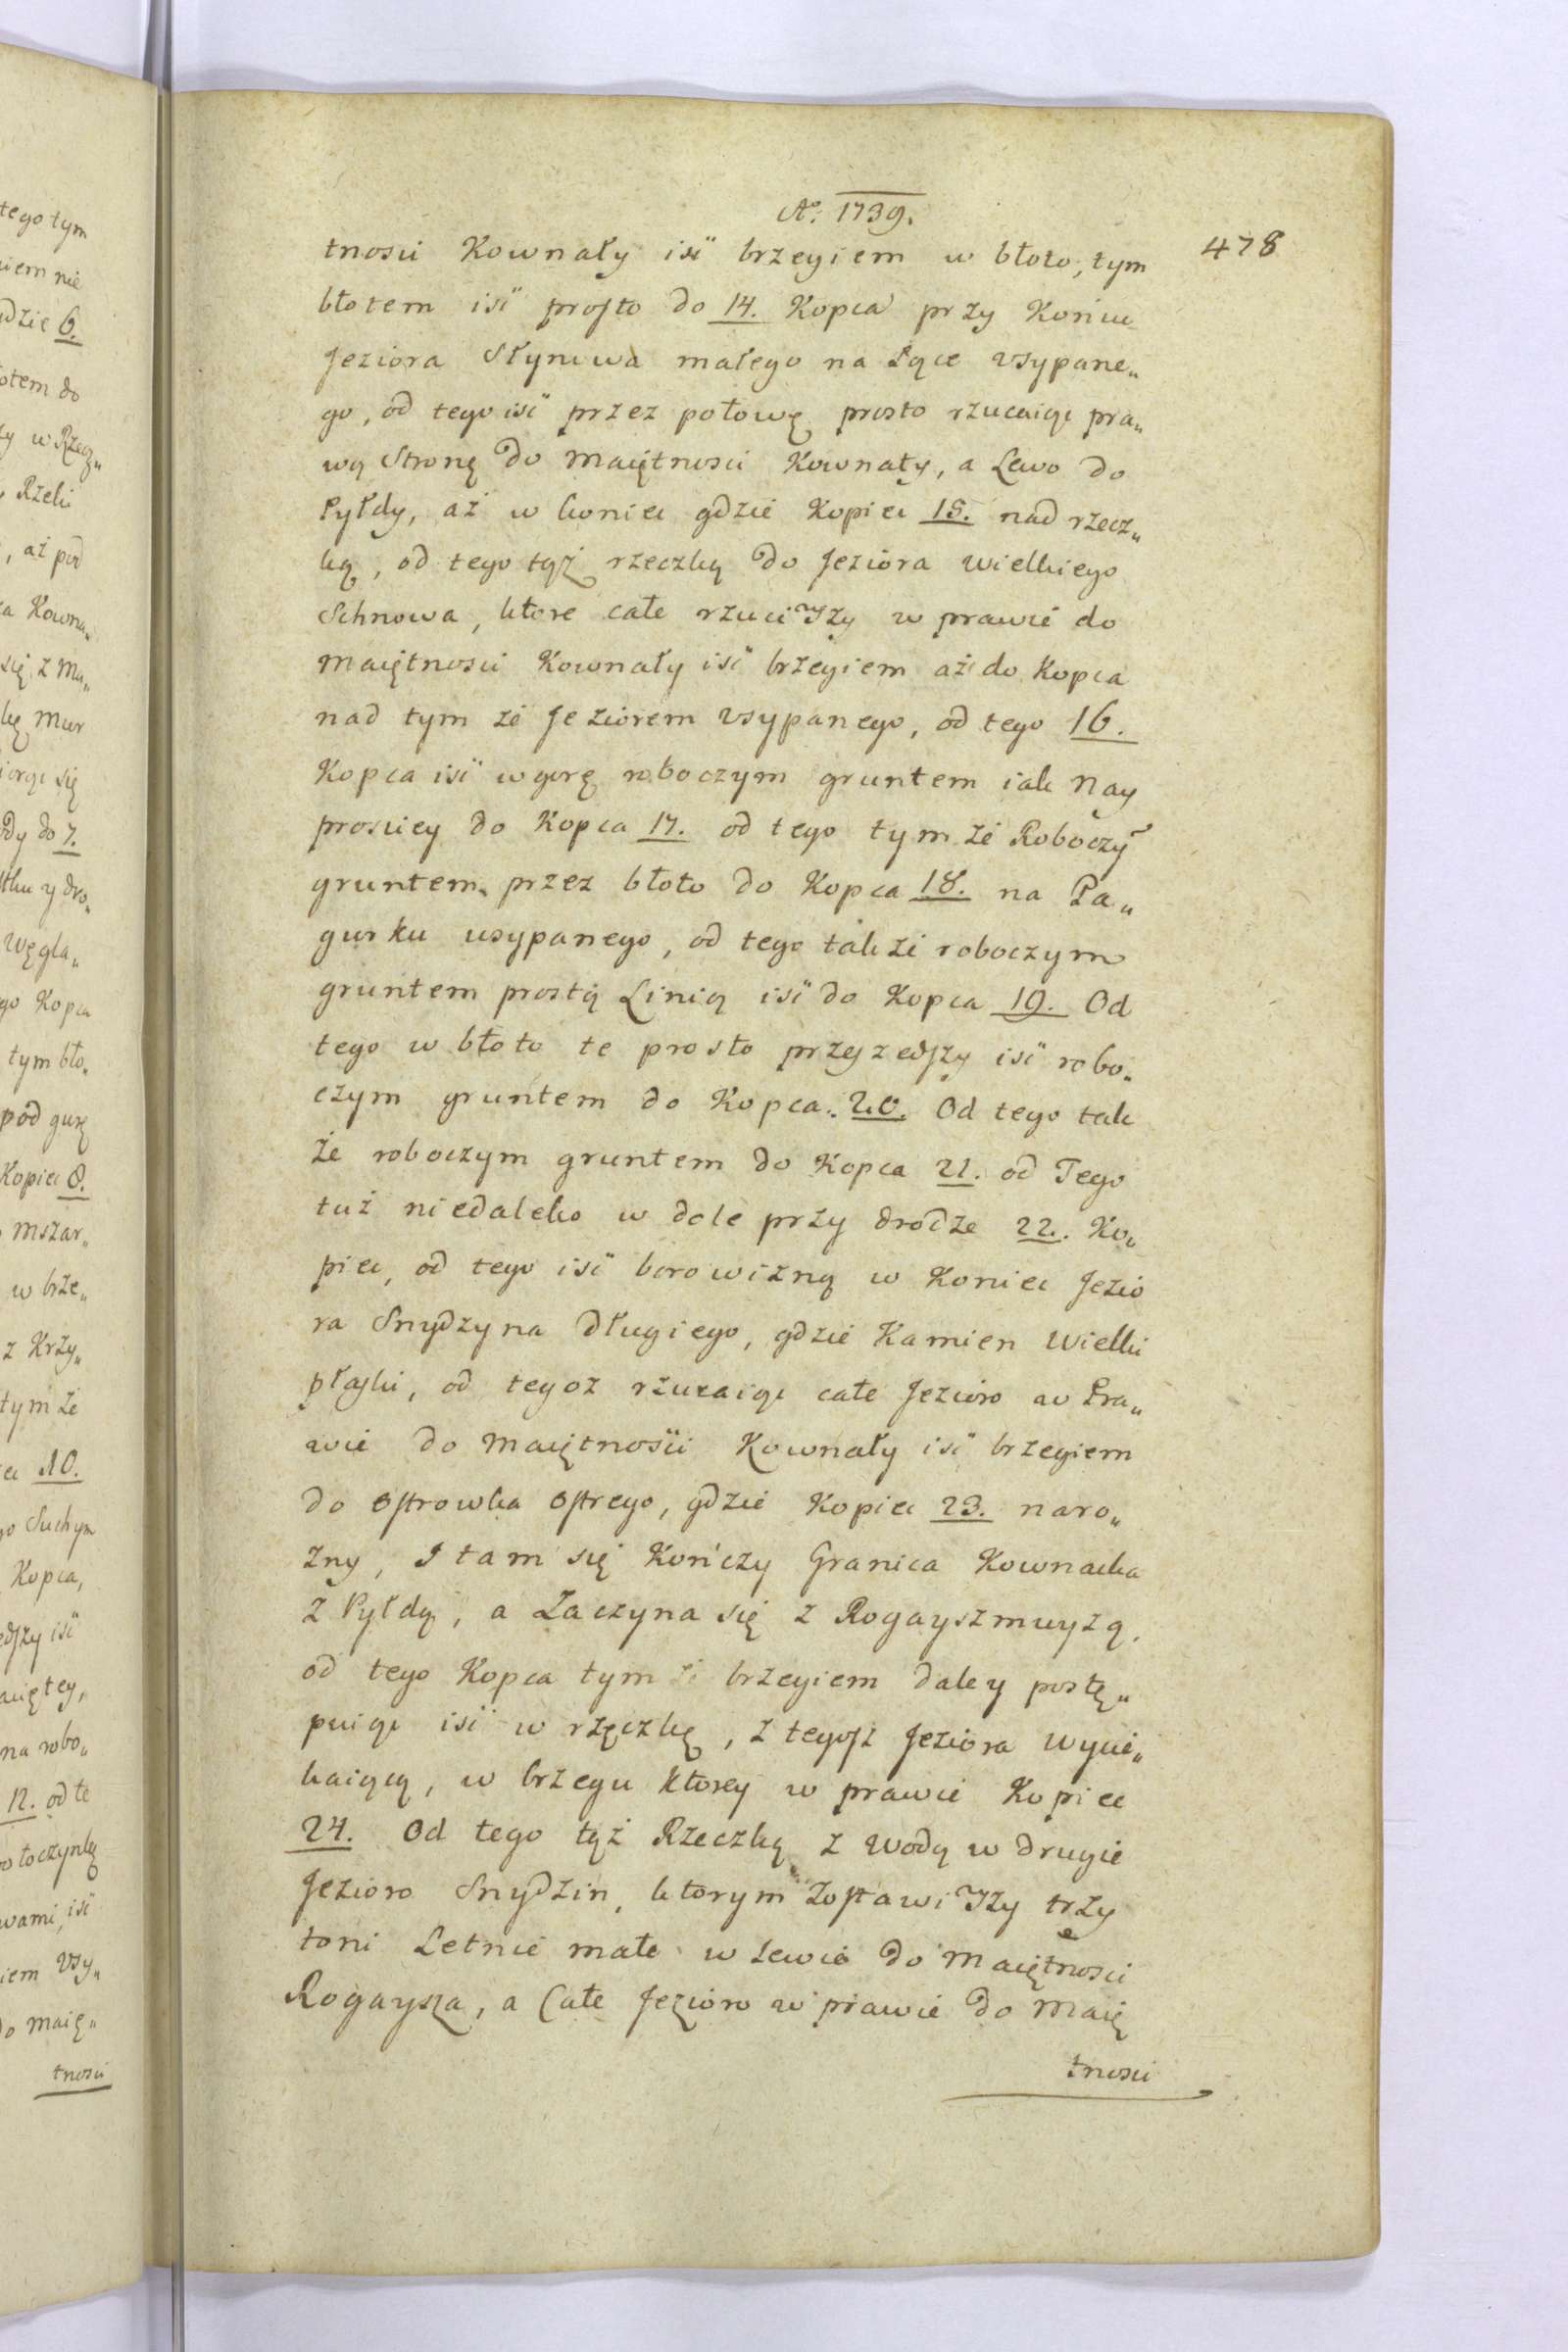 tego tym
iem nie
dzie 6.
otem do
ły w Rzecz„
Rzeki
, aż pod
ka Kowna„
się z Ma„
kę Mur
iorąc się
ody do 7.
tku y dro„
węgla„
go Kopca
tym bło„
pod gurę
Kopiec 8.
Mszar„
w brze„
z Krzy„
tym że
ca 10.
go Suchym
Kopca,
edszy isć
więtey,
na robo„
12. od te
ołoczynkę
wami, isć
iem Vsy„
do maię„
tnosci
Aᵒ: 1739.
478
tnosci Kownały isć brzegiem w błoto, tym
błotem isć prosto do 14. Kopca przy Końcu
Jeziora Słynuwa małego na Łące vsypane„
go, od tego isć przez połowę prosto rzucaiąc pra„
wą Stronę do Maiętnosci Kownały, a Lewo do
Pyłdy, aż w koniec gdzie Kopiec 15. nad rzecz„
ką, od tego tąż rzeczką do Jeziora wielkiego
Schnowa, ktore całe rzuciwszy w prawie do
Maiętnosci Kownały isć brzegiem aż do Kopca
nad tym że Jeziorem vsypanego, od tego 16.
Kopca isć w gorę roboczym gruntem iak Nay
prosciey do Kopca 17. od tego tym że Roboczỹ
gruntem przez błoto do Kopca 18. na Pa„
gurku usypanego, od tego także roboczym
gruntem prostą Linią isć do Kopca 19. Od
tego w błoto te prosto przeszedszy isć robo„
czym gruntem do Kopca 20. Od tego tak
że roboczym gruntem do Kopca 21. od Tego
tuż niedaleko w dole przy drodze 22. Ko„
piec, od tego isć borowizną w Koniec Jezio
ra Snydzyna Długiego, gdzie Kamien Wielki
płaski, od tegoż rzucaiąc całe Jezioro w Pra„
wie do Maiętnosci Kownały isć brzegiem
do ostrowka ostrego, gdzie Kopiec 23. naro„
zny, I tam się Kończy Granica Kownacka
z Pyłdą, a Zaczyna się z Rogayszmuyzą,
od tego Kopca tym że brzegiem daley postę„
puiąc isć w rzęczkę, z tegosz Jeziora wycie„
kaiącą, w brzegu ktorey w prawie Kopiec
24. Od tego tąż Rzeczką z wodą w drugie
Jezioro Snydzin, ktorym zostawiwszy trzy
toni Letnie małe w Lewie do Maiętnosci
Rogaysza, a Całe Jezioro w prawie do Maię
tnosci